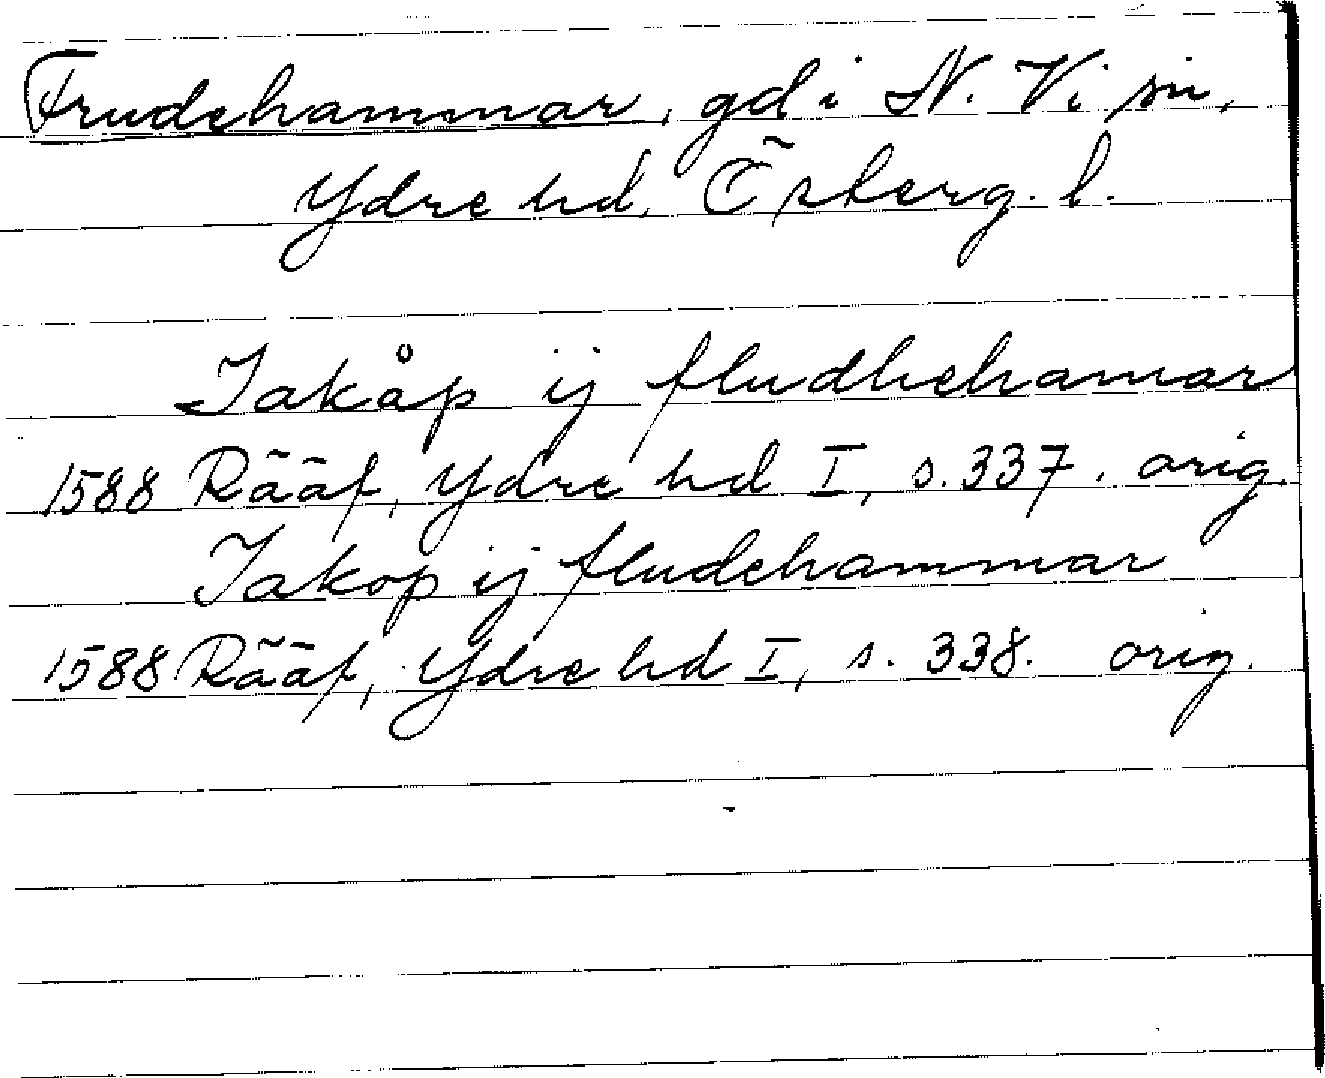 Frudehammar, gd i N. Vi sn,
Ydre hd, Östergl. l.
Jakåp ij fludhehamar
1588 Rääf, Ydre hd I, s. 337. orig.
Jakop ij fludehammar
1588 Rääf, Ydre hd I, s. 338. orig.